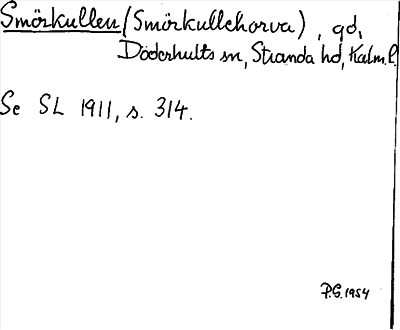 Smörkullen (Smörkullehorva), gd,
Döderhults sn, Stranda hd, Kalm.l.
Se SL 1911, s. 314.
P.G. 1954